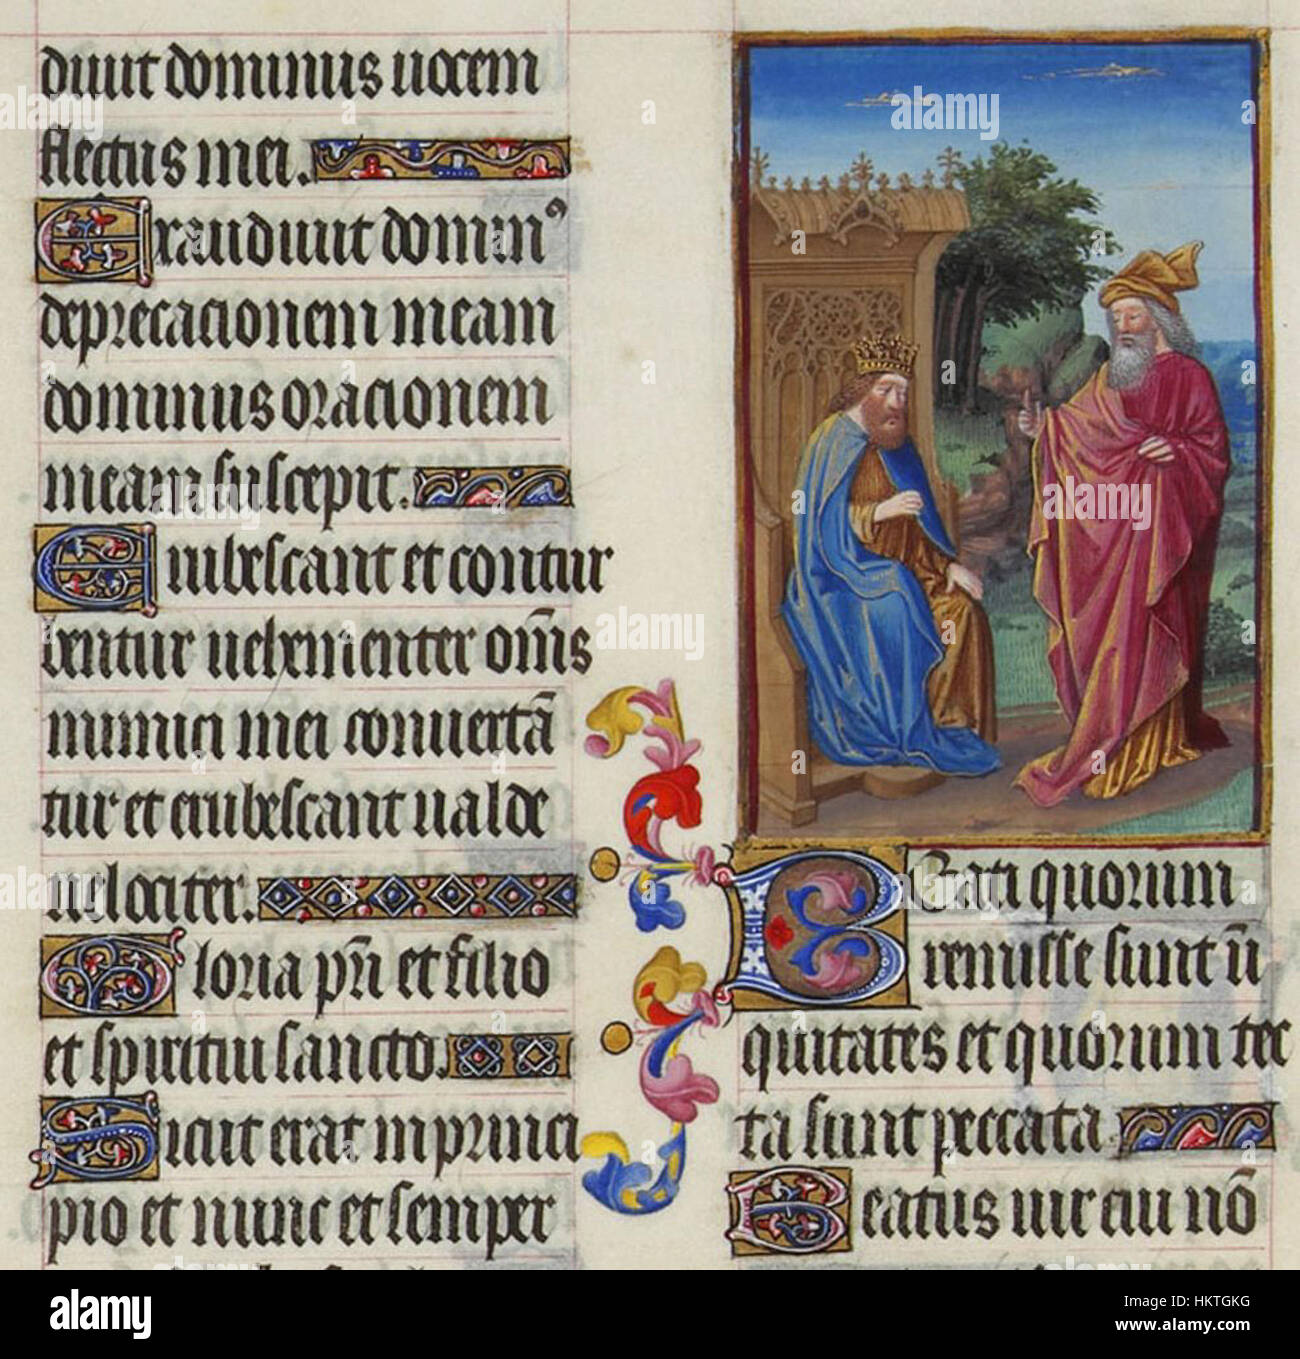 divit dominus vocem
fletus mei.
Exaudivit domin⁹
deprecacionem meam
dominus oracionem
meam suscepit.
Erubescant et contur
bentur vehementer om̄s
inimici mei convertā
tur et erubescant valde
velociter.
Gloria pr̄i et filio
et spiritui sancto.
Sicut erat in princi
pio et nunc et semper
BEati quorum
remisse sunt ū
quitates et quorum tec
ta sunt peccata.
Beatus vir cui nō
alamy
Image ID: HKTGKG
www.alamy.com